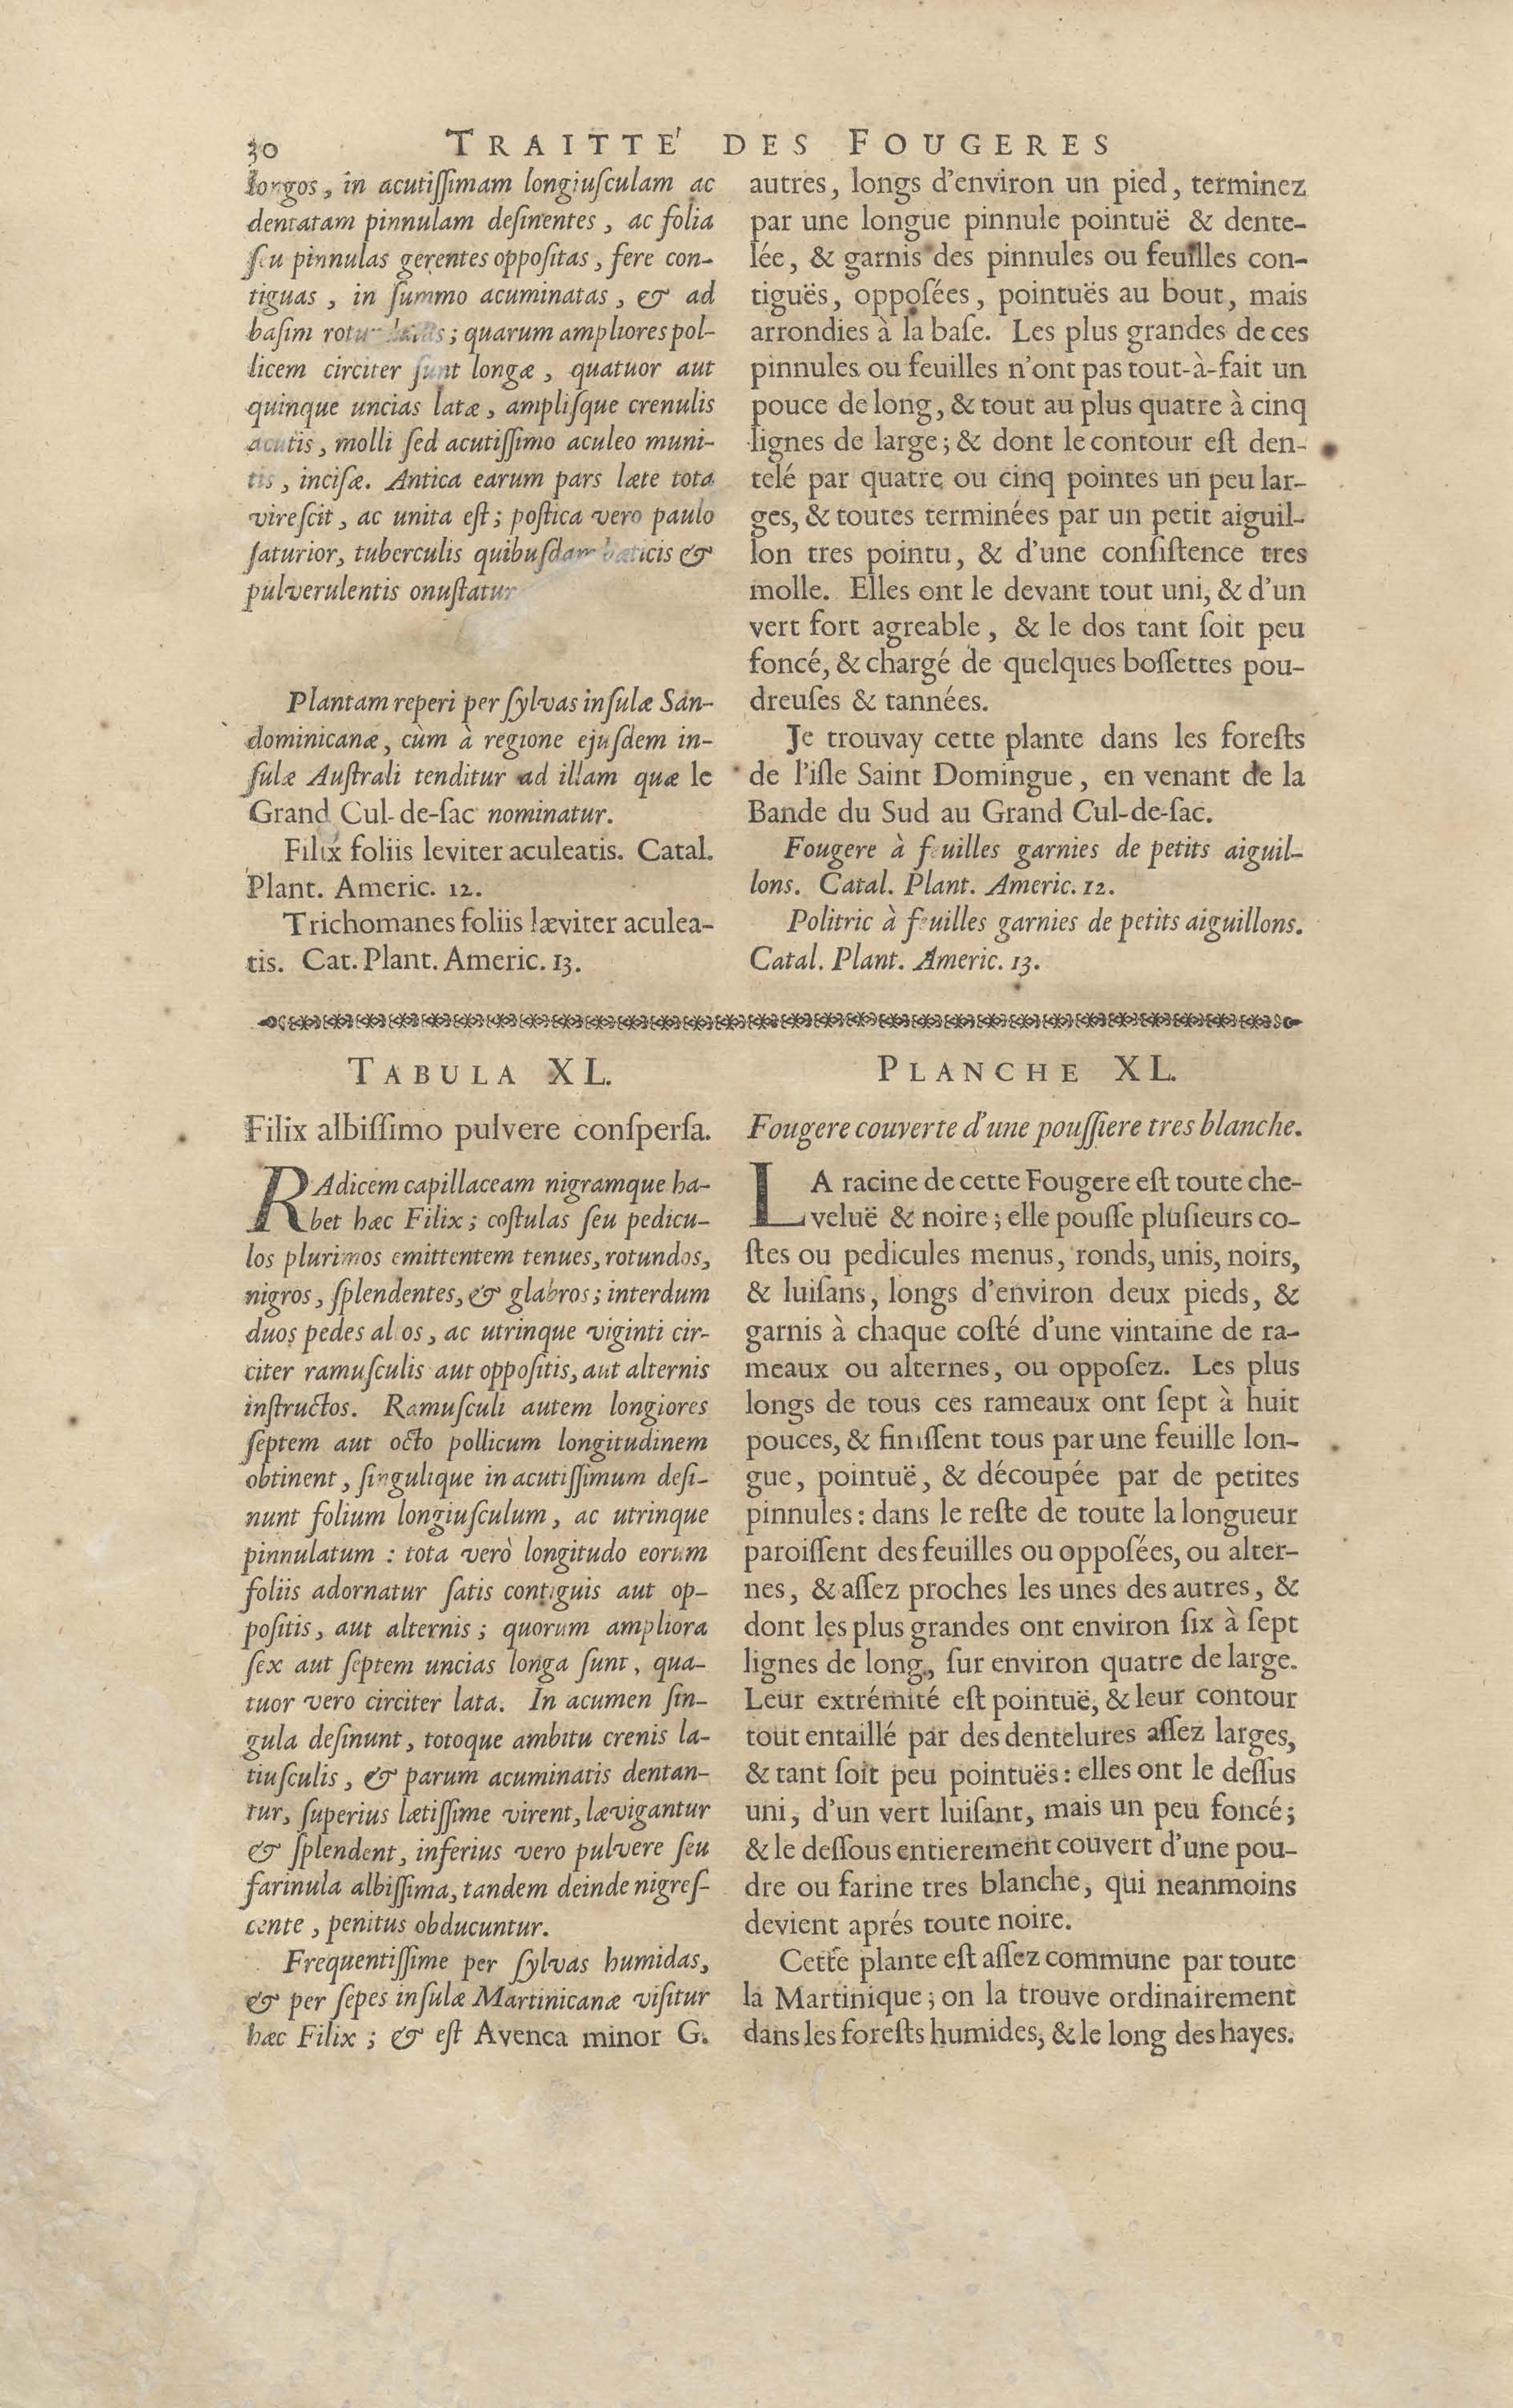 30 TRAITTE' DES FOUGERES
longos, in acutiſſimam longiuſculam ac
dentatam pinnulam deſinentes, ac folia
ſeu pinnulas gerentes oppoſitas, fere con-
tiguas, in ſummo acuminatas, & ad
baſim ; quarum ampliores pol-
licem circiter ſunt longæ, quatuor aut
quinque uncias latæ, ampliſque crenulis
acutis, molli ſed acutiſſimo aculeo muni-
tis, inciſæ. Antica earum pars læte tota
vireſcit, ac unita eſt; poſtica vero paulo
ſaturior, tuberculis quibuſdam &
pulverulentis onuſtatur
Plantam reperi per ſylvas inſulæ San-
dominicanæ, cùm à regione ejuſdem in-
ſulæ Auſtrali tenditur ad illam quæ le
Grand Cul-de-ſac nominatur.
Filix foliis leviter aculeatis. Catal.
Plant. Americ. 12.
Trichomanes foliis læviter aculea-
tis. Cat. Plant. Americ. 13.
autres, longs d'environ un pied, terminez
par une longue pinnule pointuë & dente-
lée, & garnis des pinnules ou feuilles con-
tiguës, oppoſées, pointuës au bout, mais
arrondies à la baſe. Les plus grandes de ces
pinnules ou feuilles n'ont pas tout-à-fait un
pouce de long, & tout au plus quatre à cinq
lignes de large; & dont le contour eſt den-
telé par quatre ou cinq pointes un peu lar-
ges, & toutes terminées par un petit aiguil-
lon tres pointu, & d'une conſiſtence tres
molle. Elles ont le devant tout uni, & d'un
vert fort agreable, & le dos tant ſoit peu
foncé, & chargé de quelques boſſettes pou-
dreuſes & tannées.
Je trouvay cette plante dans les foreſts
de l'iſle Saint Domingue, en venant de la
Bande du Sud au Grand Cul-de-ſac.
Fougere à feuilles garnies de petits aiguil-
lons. Catal. Plant. Americ. 12.
Politric à feuilles garnies de petits aiguillons.
Catal. Plant. Americ. 13.
TABULA XL.
Filix albiſſimo pulvere conſperſa.
RAdicem capillaceam nigramque ha-
bet hæc Filix; coſtulas ſeu pedicu-
los plurimos emittentem tenues, rotundos,
nigros, ſplendentes, & glabros; interdum
duos pedes altos, ac utrinque viginti cir-
citer ramuſculis aut oppoſitis, aut alternis
inſtructos. Ramuſculi autem longiores
ſeptem aut octo pollicum longitudinem
obtinent, ſingulique in acutiſſimum deſi-
nunt folium longiuſculum, ac utrinque
pinnulatum : tota verò longitudo eorum
foliis adornatur ſatis contiguis aut op-
poſitis, aut alternis; quorum ampliora
ſex aut ſeptem uncias longa ſunt, qua-
tuor vero circiter lata. In acumen ſin-
gula deſinunt, totoque ambitu crenis la-
tiuſculis, & parum acuminatis dentan-
tur, ſuperius lætiſſime virent, lævigantur
& ſplendent, inferius vero pulvere ſeu
farinula albiſſima, tandem deinde nigreſ-
cente, penitus obducuntur.
Frequentiſſime per ſylvas humidas,
& per ſepes inſulæ Martinicanæ viſitur
hæc Filix; & eſt Avenca minor G.
PLANCHE XL.
Fougere couverte d'une pouſſiere tres blanche.
LA racine de cette Fougere eſt toute che-
veluë & noire; elle pouſſe pluſieurs co-
ſtes ou pedicules menus, ronds, unis, noirs,
& luiſans, longs d'environ deux pieds, &
garnis à chaque coſté d'une vintaine de ra-
meaux ou alternes, ou oppoſez. Les plus
longs de tous ces rameaux ont ſept à huit
pouces, & finiſſent tous par une feuille lon-
gue, pointuë, & découpée par de petites
pinnules: dans le reſte de toute la longueur
paroiſſent des feuilles ou oppoſées, ou alter-
nes, & aſſez proches les unes des autres, &
dont les plus grandes ont environ ſix à ſept
lignes de long, ſur environ quatre de large.
Leur extrémité eſt pointuë, & leur contour
tout entaillé par des dentelures aſſez larges,
& tant ſoit peu pointuës: elles ont le deſſus
uni, d'un vert luiſant, mais un peu foncé;
& le deſſous entierement couvert d'une pou-
dre ou farine tres blanche, qui neanmoins
devient aprés toute noire.
Cette plante eſt aſſez commune par toute
la Martinique; on la trouve ordinairement
dans les foreſts humides, & le long des hayes.